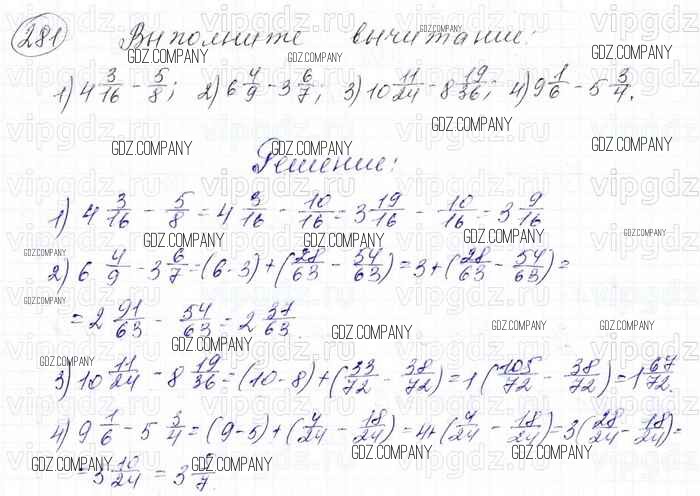 281 Выполните вычитание:
1) 4 3/16 - 5/8; 2) 6 4/9 - 3 6/7; 3) 10 11/24 - 8 19/36; 4) 9 1/6 - 5 3/4.
Решение:
1) 4 3/16 - 5/8 = 4 3/16 - 10/16 = 3 19/16 - 10/16 = 3 9/16
2) 6 4/9 - 3 6/7 = (6-3) + (28/63 - 54/63) = 3 + (28/63 - 54/63) =
= 2 91/63 - 54/63 = 2 37/63.
3) 10 11/24 - 8 19/36 = (10-8) + (33/72 - 38/72) = 1 (105/72 - 38/72) = 1 67/72.
4) 9 1/6 - 5 3/4 = (9-5) + (4/24 - 18/24) = 4 + (4/24 - 18/24) = 3 (28/24 - 18/24) =
= 3 10/24 = 3 5/7.
GDZ.COMPANY
vipgdz.ru